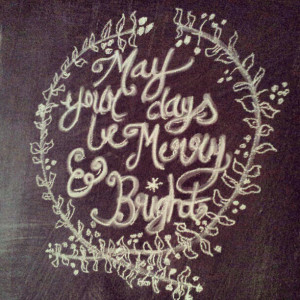 May
your days
be Merry
& Bright